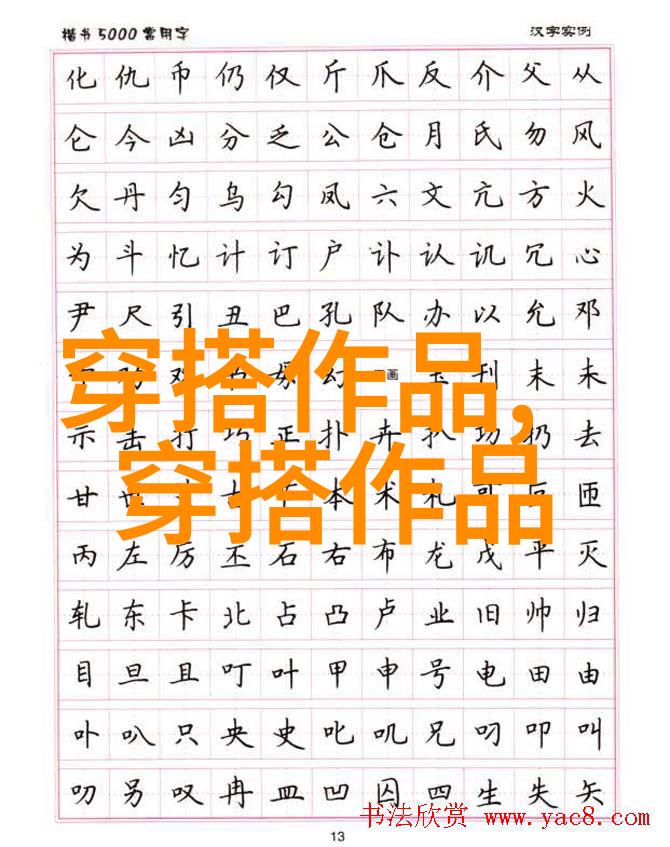 楷书5000常用字 汉字实例
化仇币仍仅斤爪反介父从
仑今凶分乏公仓月氏勿风
欠丹匀乌勾凤六文亢方火
为斗忆计订户讣认讥冗心
尹尺引丑巴孔队办以允邓
幻画玉刊末未
穿搭作品,
示击打巧正扑卉扒功扔去
穿搭作品
甘本术札匝
丙左厉丕石右布龙戊平灭
轧东卡北占凸卢业旧帅归
目旦且叮叶甲申号电田由
卟叭只央史叱叽兄叼叩叫
叻另叹冉皿凹囚四生失矢
书法欣赏 www.yac8.com
13